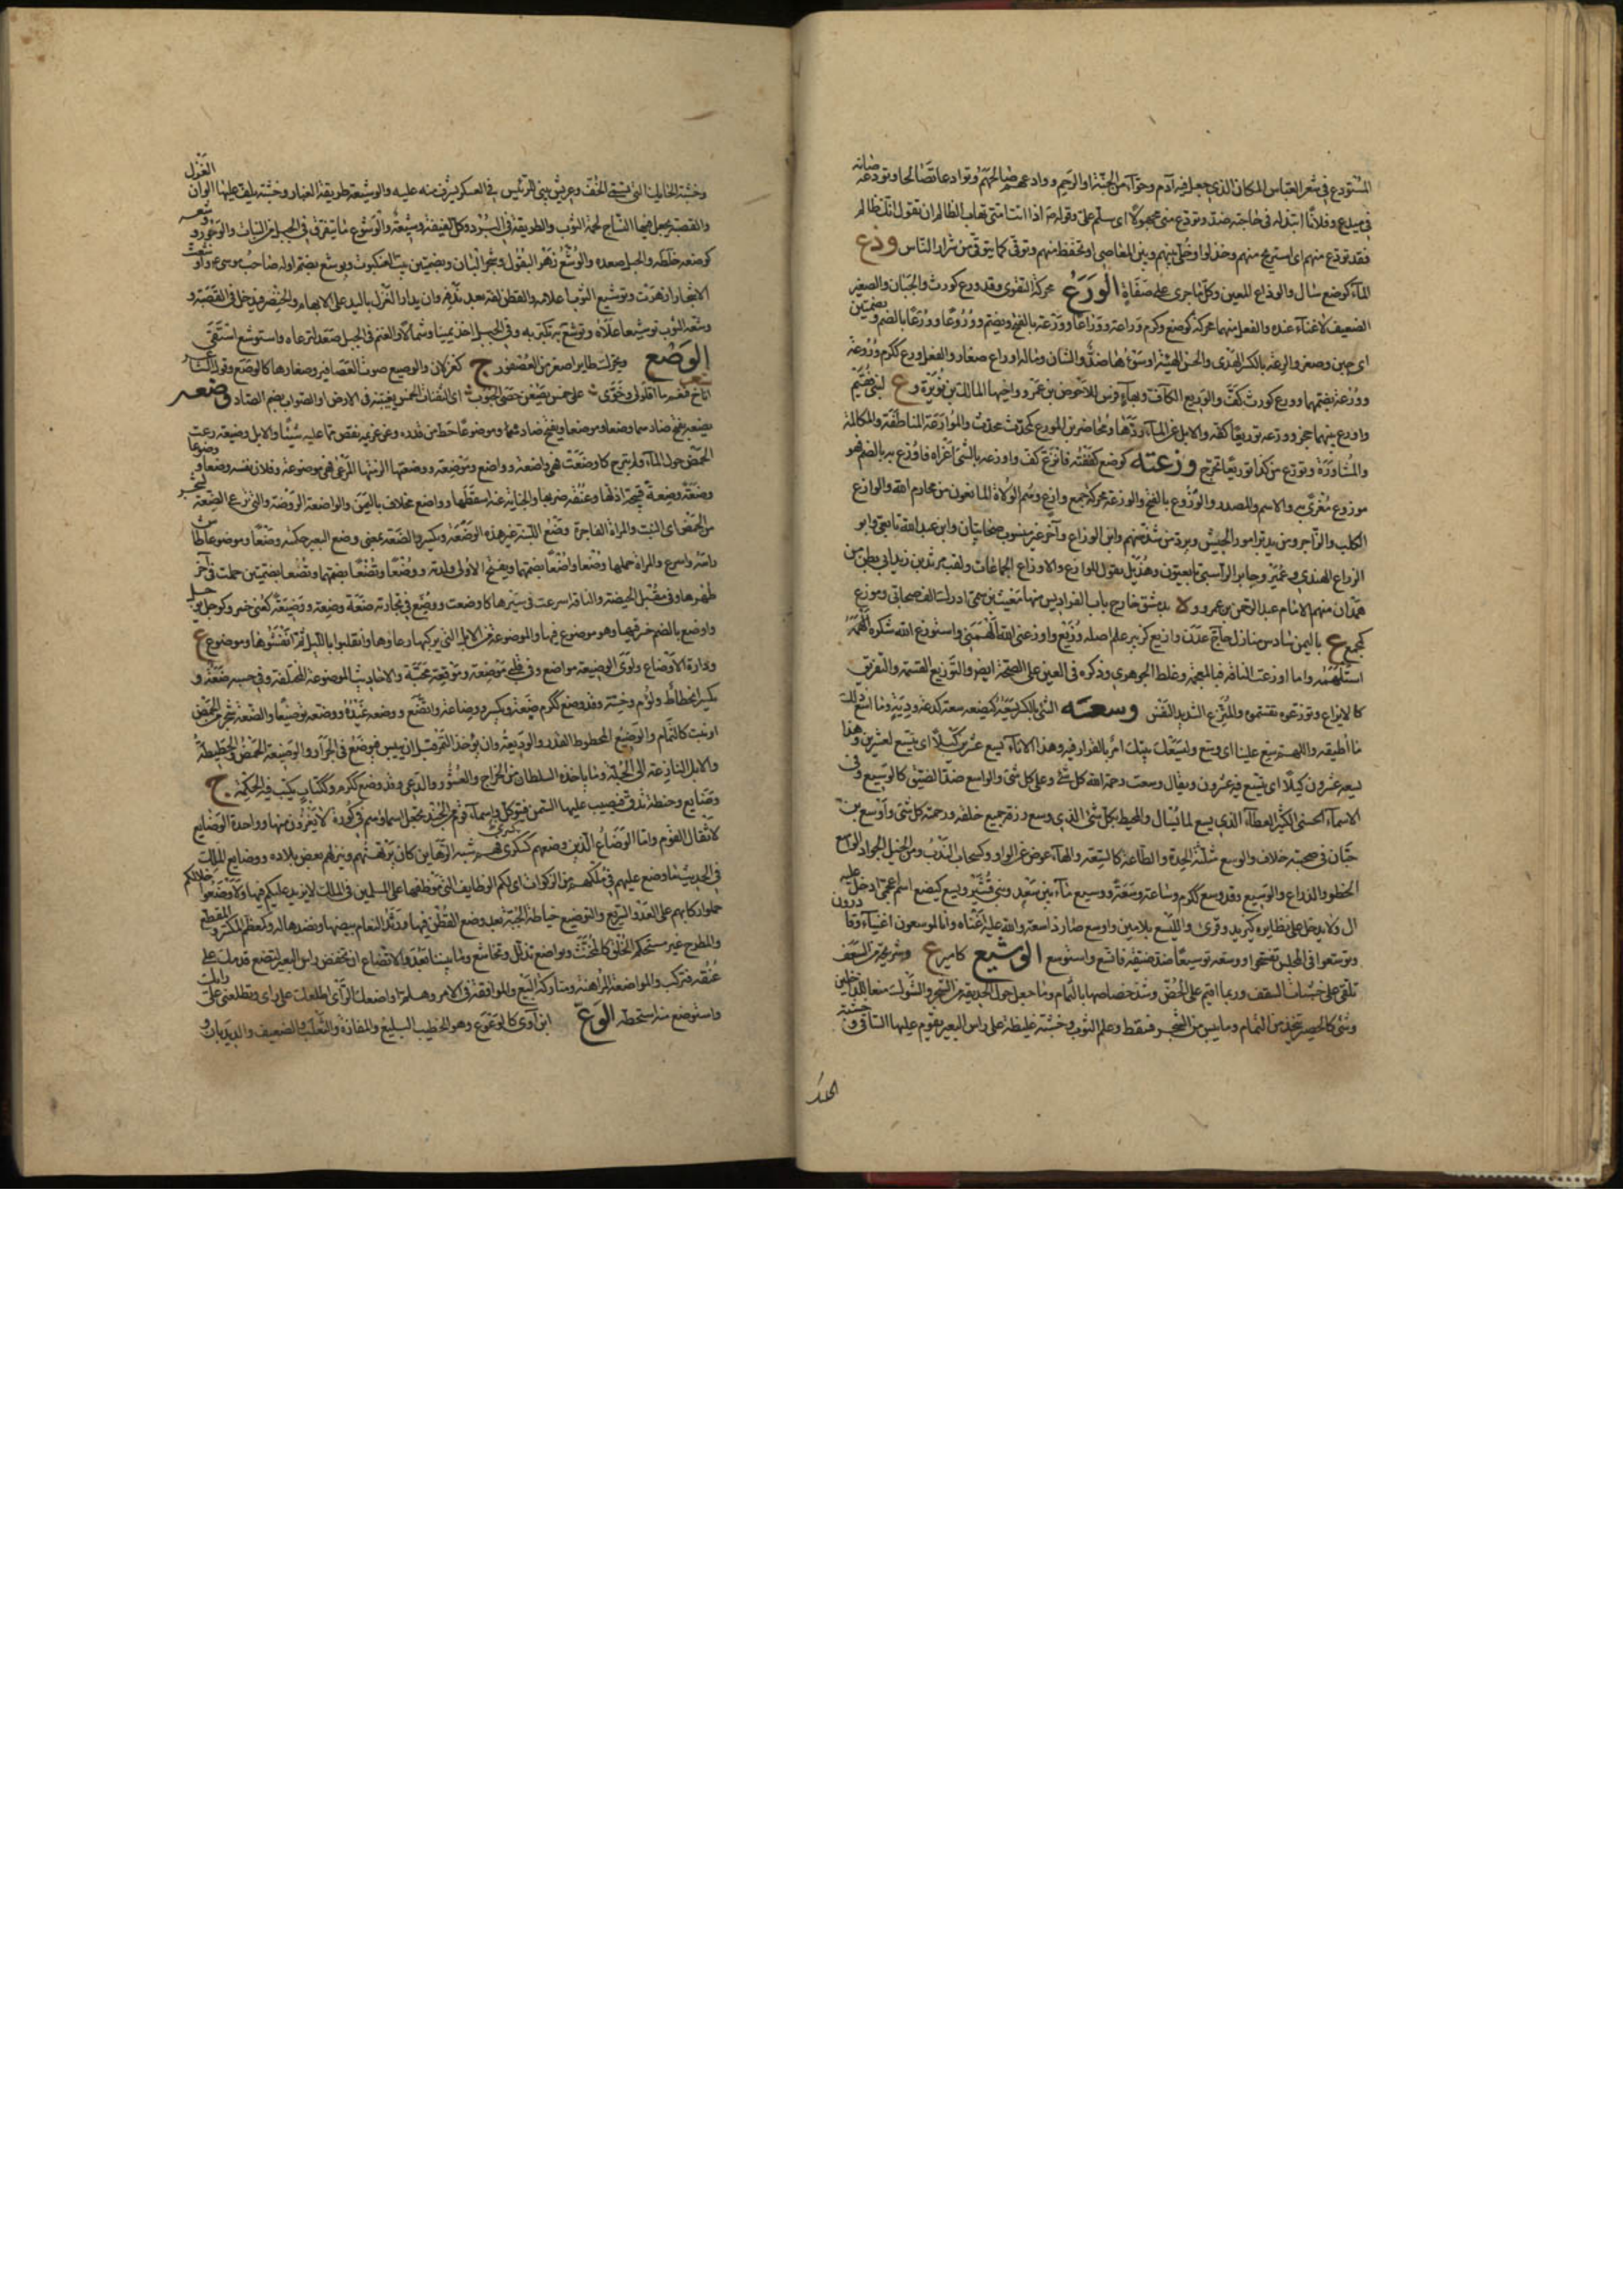 المستودع في شعر العباس المكان الذي جعل فيه آدم وحوآء من الجنة او الرحم ووادعهم صالحهم وتوادعا تصالحا وتودعه صانه
في ميدع وفلانا ابتذله في حاجته ضد وتودع مني مجهولا اي سلم علي وقوله اذا رايت امتي تهاب الظالم ان تقول انك ظالم
فقد تودع منهم اي استريح منهم وخذلوا وخلي بينهم وبين المعاصي او تحفظ منهم وتوقي كما يتوقى من شرار الناس وذع
المآء كوضع سال والوذاع المعين وكل ما جرى على صفاة الورع محركة التقوى وقد ورع كورث والجبان والصغير
الضعيف لا غنآء عنده والفعل منهما محركة كوضع وكرم وراعة ووراعا وورعة بالفتح ويضم ووروعا وورعا بالضم وبضمتين
اي جبن وصغر والرعة بالكسر الهدى وحسن الهيئة او سوءها ضد والشان وماله اوراع صغار والفعل ورع ككرم وروعة
وورعة بضمهما وورع كورث كف والوريع الكاف وبهآء فرس للاحوص بن عمرو ووهبها لمالك بن نويرة وع لبني فقيم
واورع بينهما حجز وورعه توريعا كفه والابل عن المآء ردها ومحاضر بن المورع كمحدث محدث والموارعة المناطقة والمكالمة
والمشاورة وتورع من كذا توريعا تحرج وزعته كوضع كففته فاتزع كف واوزعه بالشئ اغراه فاوزع به بالضم فهو
موزوع مغرى به والاسم والمصدر الوزوع بالفتح والوزعة محركة جمع وازع وهم الولاة المانعون من محارم الله والوازع
الكلب والزاجر ومن يدبر امور الجيش ويرد من شذ منهم وابن الوزاع وآخر غير منسوب صحابيان وابن عبد الله تابعي وابو
الوازع الهندي وعمير وجابر الراسبي تابعيون وهذيل تقول للوازع والاوزاع الجماعات ولقب مرثد بن زيد ابي بطن من
همدان منهم الامام عبد الرحمن بن عمرو ولا بدمشق خارج باب الفراديس منها مغيث بن سمي ادرك الف صحابي وموزع
كمجمع ع باليمن سادس منازل حاج عدن وازيع كزبير علم اصله وزيع واوزعني الله الهمني واستوزع الله شكره الهمه
استلهمه واما اوزعت الناقة فبالمعجمة وغلط الجوهري وذكره في العين على الصحة ايض والتوزيع القسمة والتفريق
كالايزاع وتوزعوه تقسموه والمتزع الشديد النفس وسعه الشئ بالكسر يسعه كيضعه سعة كدعة ودية وما اسع ذلك
ما اطيقه واللهم سع علينا اي وسع وليسعك بيتك امر بالقرار فيه وهذا الانآء يسع عشرين كيلا اي يتسع لعشرين وهذا
يسعه عشرون كيلا اي يتسع فيه عشرون ويقال وسعت رحمة الله كل شئ وعلى كل شئ والواسع ضد الضيق كالوسيع وفي
الاسمآء الحسنى الكثير العطآء الذي يسع لما يسال والمحيط بكل شئ الذي وسع رزقه جميع خلقه ورحمته كل شئ واوسع بن
حبان في صحبته خلاف والوسع مثلثة الجدة والطاعة كالسعة والهآء عوض عن الواو وكسحاب الندب ومن الخيل الجواد الواسع
الخطو والذراع والوسيع وقد وسع ككرم وساعة وسعة ووسيع مآء بين سعد وبني قشير ويسع كيضع اسم اعجمي ادخل عليه
ال ولا يدخل على نظايره كيزيد وقرئ والليسع بلامين واوسع صار ذا سعة والله عليه اغناه وانا لموسعون اغنيآء قادرون
وتوسعوا في المجلس تفسحوا ووسعه توسيعا ضد ضيقه فاتسع واستوسع الوشيع كامير ع وشريجة من السعف
تلقى على خشبات السقف وربما اقيم على الخص وسد خصاصها بالثمام وما جعل حول الحديقة من الشجر والشوك منعا للداخلين
وشئ كالحصير يتخذ من الثمام وما يبس من الشجر فسقط وعلم الثوب وخشبة غليظة على راس البئر يقوم عليها الساقي و
وخشبة الحايك التي تسمى الحف وعريش يبنى للرئيس في العسكر يشرف منه عليه والوشيعة طريقة الغبار وخشبة يلف عليها الوان الغزل
والقصبة يجعل فيها النساج لحمة الثوب والطريقة في البرد وكل لفيفة وشيعة والوشوع ما يتفرق في الجبل من النبات والوجور ووشعه
كوضعه خلطه والجبل صعده والوشع زهر البقول وشجر البان وبضمتين بيت العنكبوت ويوشع بضم اوله صاحب موسى ع واوشعت
الاشجار ازهرت وتوشيع الثوب اعلامه والقطن لفه بعد ندفه وان يدار الغزل باليد على الابهام والخنصر فيدخل في القصبة و
وشعه الثوب توشيعا علاه وتوشع به تكثر به وفي الجبل اخذ يمينا وشمالا والغنم في الجبل صعد لترعاه واستوشع استقى
الوصع ويحرك طاير اصغر من العصفور ج كغزلان والوصيع صوت العصافير وصغارها كالوصع وقول الشاعر
اناخ فنعم ما اقلولى وخوى على خمس يصعن حصى الجبوب اي الثفنات الخمس يغيبنه في الارض او الصواب بضم الصاد وضعه
يضعه بفتح ضادهما وضعا وموضعا ويفتح ضاده وموضوعا حطه من قدره وعن غريمه نقص مما عليه شيئا والابل وضيعة رعت
الحمض حول المآء ولم تبرح كاوضعت فهي واضعة وواضع وموضعة ووضعتها الزمتها المرعى فهي موضوعة وفلان نفسه وضعا ووضوعا
وضعة وضعة قبيحة اذلها وعنقه ضربها والجناية عنه اسقطها وواضع مخلاف باليمن والواضعة الروضة والتي ترعى الضعة لشجر
من الحمض او النبت والمراة الفاجرة وضع اللبنة غير هذه الوضعة ويكسر والضعة بمعنى وضع البعير حكمته وضعا وموضوعا طاش
راسه واسرع والمراة حملها وضعا وتضعا بضمهما ويفتح الاولى ولدته ووضعا وتضعا بضمهما وتضعا بضمتين حملت في آخر
طهرها وفي مقبل الحيضة والناقة اسرعت في سيرها كاوضعت ووضع في تجارته ضعة وضعة ووضيعة كعني خسر وكوجل يوجل
واوضع بالضم خسر فيها وهو موضوع فيها والموضوعة من الابل التي تركها رعاوها وانقلبوا بالليل ثم انفشوها وموضوع ع
ودارة الاوضاع ولوى الوضيعة مواضع وفي قلبي موضعة وموقعة محبة والاحاديث الموضوعة المختلقة وفي حسبه ضعة و
يكسر انحطاط ولؤم وخسة وقد وضع ككرم ضعة ويكسر ووضاعة واتضع ووضعه غيره ووضعه توضيعا والضعة شجر من الحمض
او نبت كالثمام والوضيع المحطوط القدر والوديعة وان يؤخذ التمر قبل ان ييبس فيوضع في الجرار والوضيعة الحمض والحطيطة
والابل النازعة الى الخلة وما ياخذه السلطان من الخراج والعشور والدعي وقد وضع ككرم وكتاب يكتب فيه الحكمة ج
وضايع وحنطة تدق فيصب عليها السمن فتوكل واسمآء قوم من الجند تجعل اسماؤهم في كورة لا يغزون منها وواحدة الوضايع
لاثقال القوم واما الوضائع الذين وضعهم كسرى فهم شبه الرهاين كان يرتهنهم وينزلهم بعض بلاده ووضايع الملك
في الحديث ما وضع عليهم في ملكهم من الزكوات اي لكم الوظايف التي نوظفها على المسلمين في الملك لا يزيد عليكم فيها ولاوضعوا خلالكم
حملوا ركابهم على العدو السريع والتوضيع خياطة الجبة بعد وضع القطن فيها ورثد النعام بيضها ونضدها له وكمعظم المكسر والمقطع
والمطرح غير مستحكم الخلق كالمخنث وتواضع تذلل وتخاشع وما بيننا بعد والاتضاع ان تخفض راس البعير لتضع قدمك على
عنقه فتركب والمواضعة المراهنة ومتاركة البيع والموافقة في الامر وهلم اواضعك الراي اطلعك على رايي وتطلعني على رايك
واستوضع منه استحطه الوع ابن آوى كالوعوع وهو الخطيب البليغ والمفازة والثعلب والضعيف والديدبان و